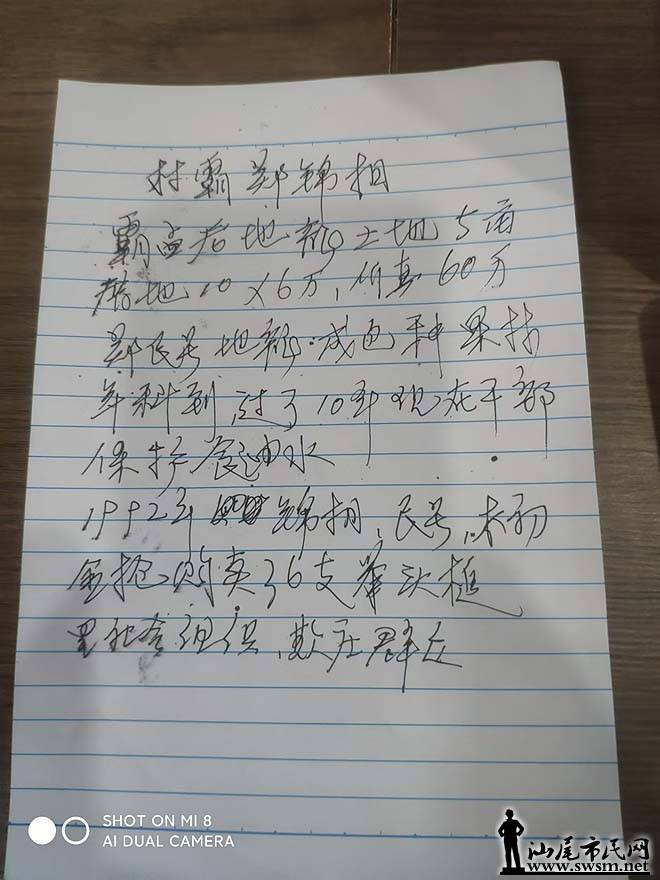 村霸郑锦相
霸占君地郭土地5亩
地10×6万,价真60万
郑民号地郭.成色种果林
年科到,过了10年现在干部
保护食油水
1992年 锦相,民号,木初
金抢购卖了6支拳头槌
黑社会组织,欺压群众
SHOT ON MI 8
AI DUAL CAMERA
汕尾市民网
www.swsm.net